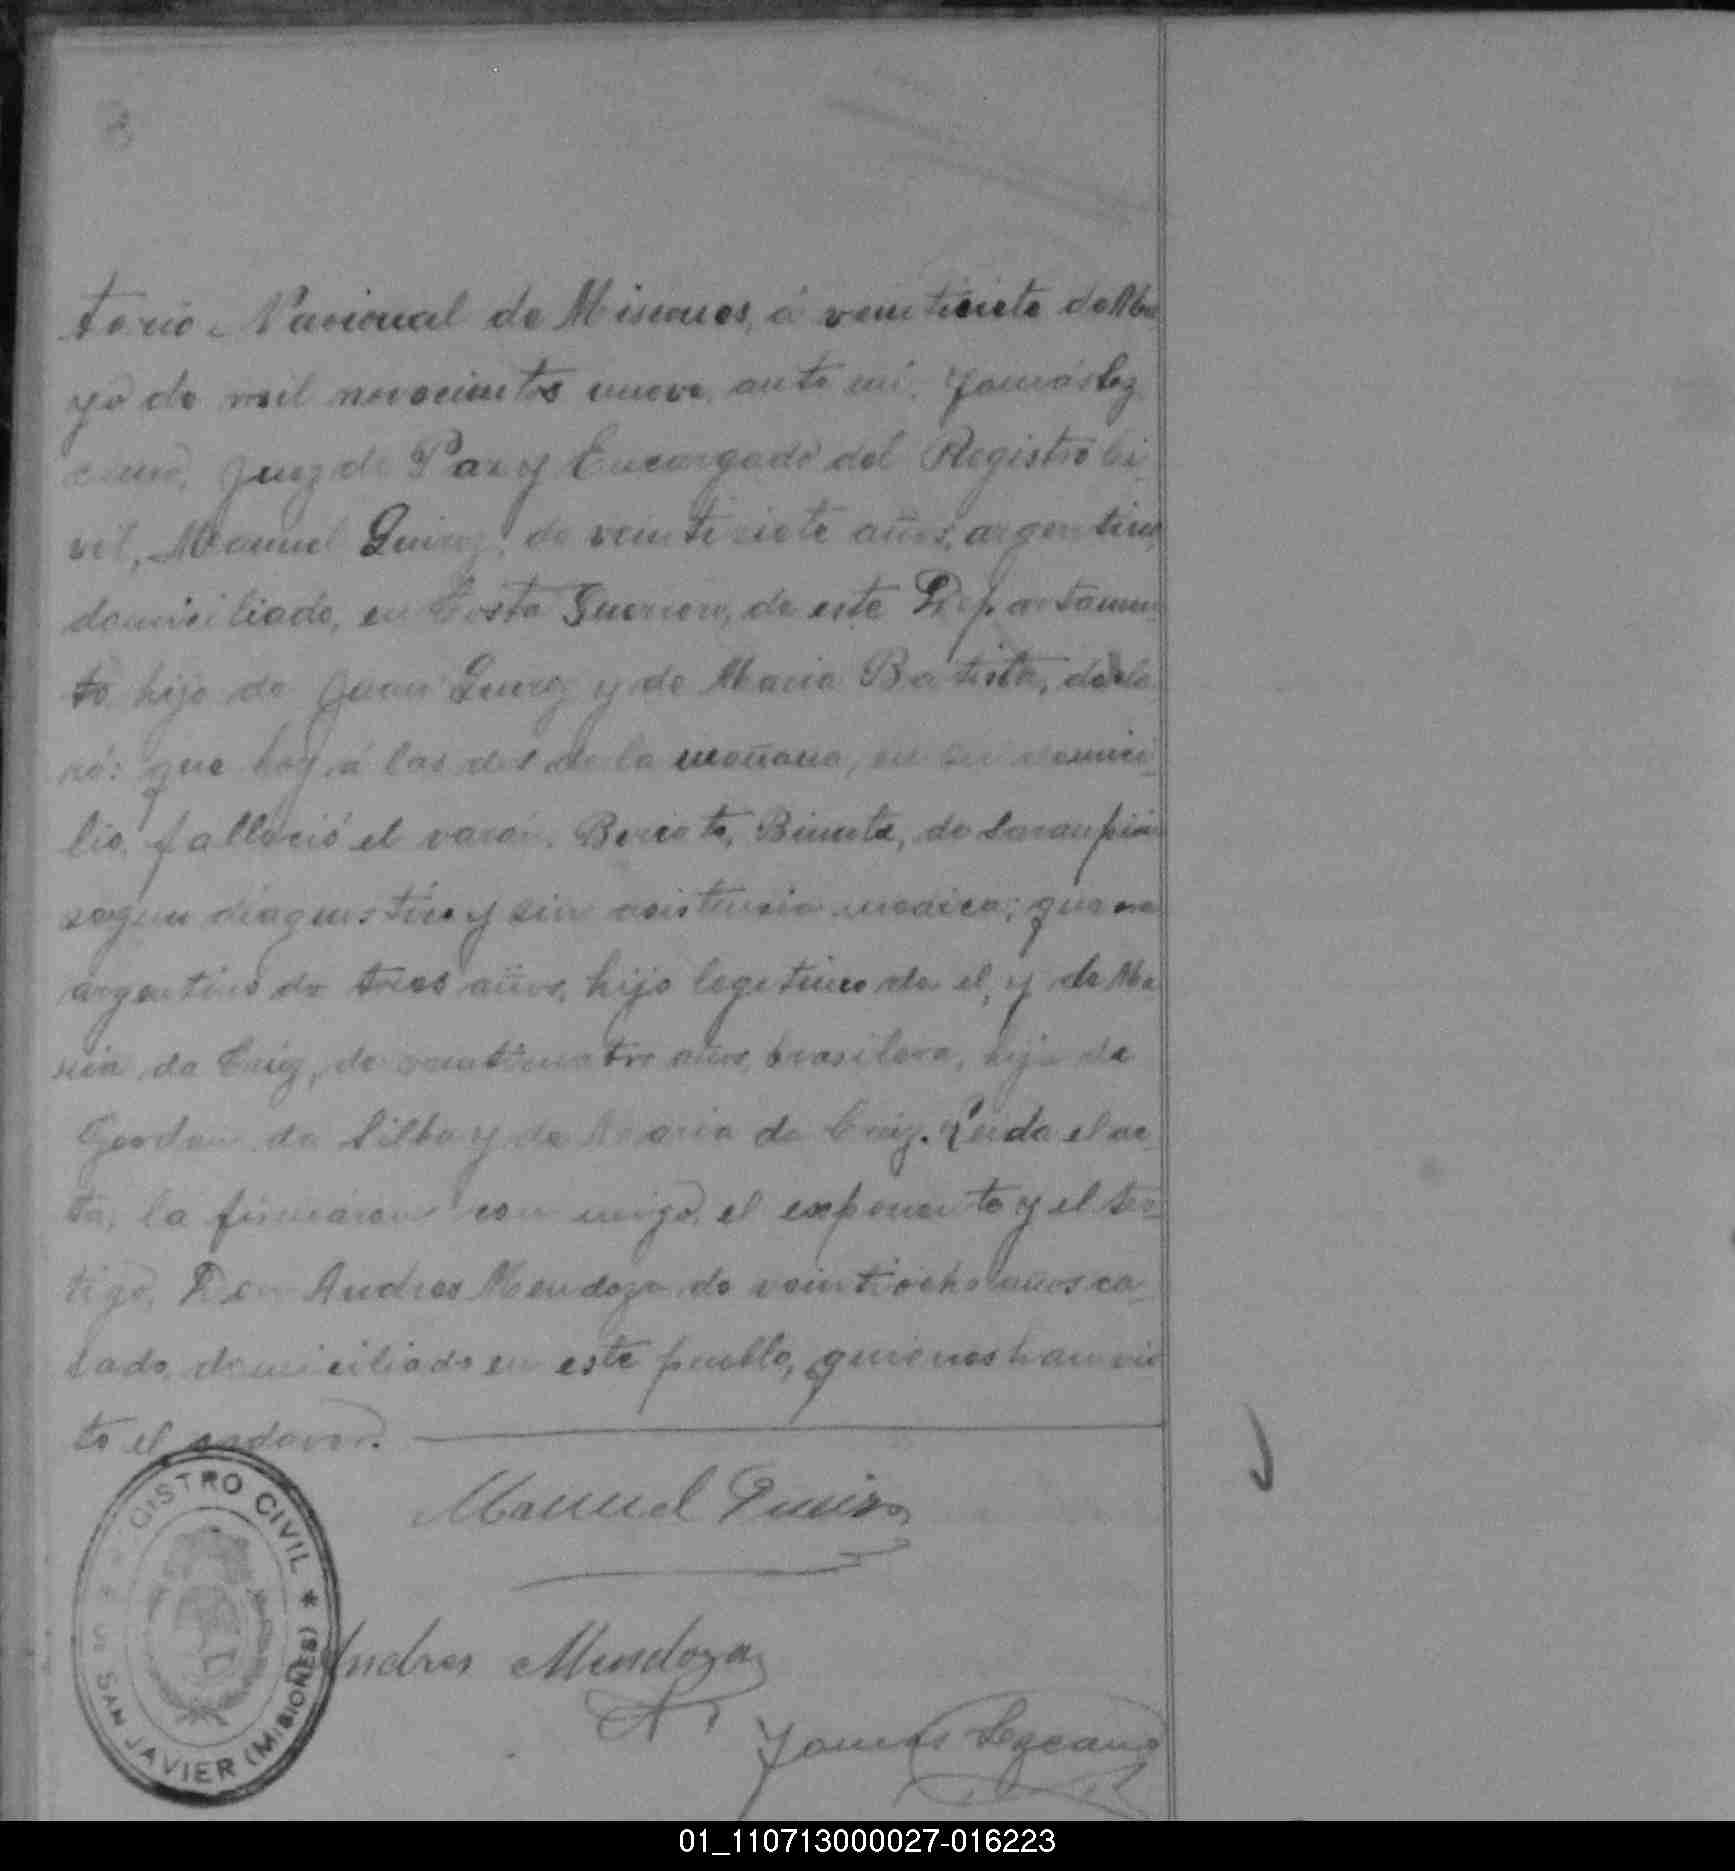 torio Nacional de Misiones, á veintisiete de Ma
yo de mil novecientos nueve, ante mí, Tomás Lez
cano, Juez de Paz y Encargado del Registro Ci
vil, Manuel de veintisiete años, argentino,
domiciliado, en Costa Guerrero, de este Departamen
to hijo de Juan y de Maria Batista, decla
ró: que hoy á las dos de la mañana, en su domici
lio, falleció el varón, de Sarampión
segun diagnostico y sin asistencia medica; que era
argentino de tres años, hijo legetimo de el, y de Ma
ria da Cruz, de veinticuatro años, brasilera, hija de
da Silba y de Maria da Cruz. Leida el ac
ta, la firmaron con migo, el exponente y el tes
tigo, Don Andres Mendoza de veintiocho años ca
sado, domiciliado en este pueblo, quienes han vis
to el cadaver.
Manuel
Andres Mendoza
Tomás Lezcano
GISTRO CIVIL * SAN JAVIER (MISIONES)
01_110713000027-016223